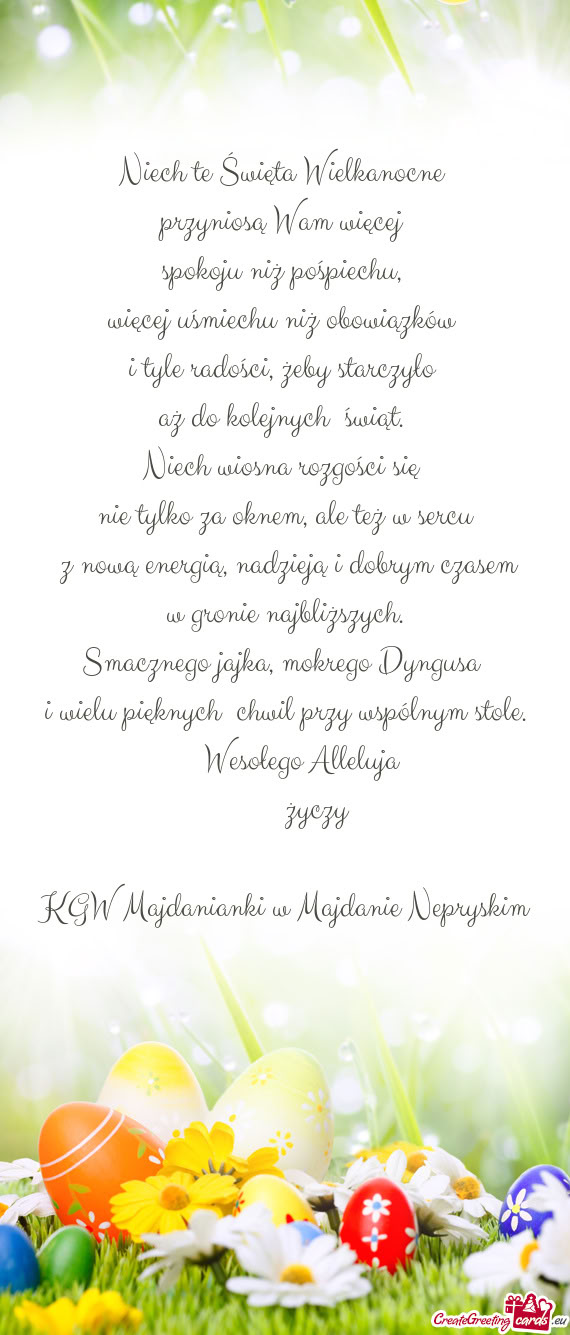 Niech te Święta Wielkanocne
przyniosą Wam więcej
spokoju niż pośpiechu,
więcej uśmiechu niż obowiązków
i tyle radości, żeby starczyło
aż do kolejnych świąt.
Niech wiosna rozgości się
nie tylko za oknem, ale też w sercu
z nową energią, nadzieją i dobrym czasem
w gronie najbliższych.
Smacznego jajka, mokrego Dyngusa
i wielu pięknych chwil przy wspólnym stole.
Wesołego Alleluja
życzy
KGW Majdanianki w Majdanie Nepryskim
CreateGreeting cards .eu